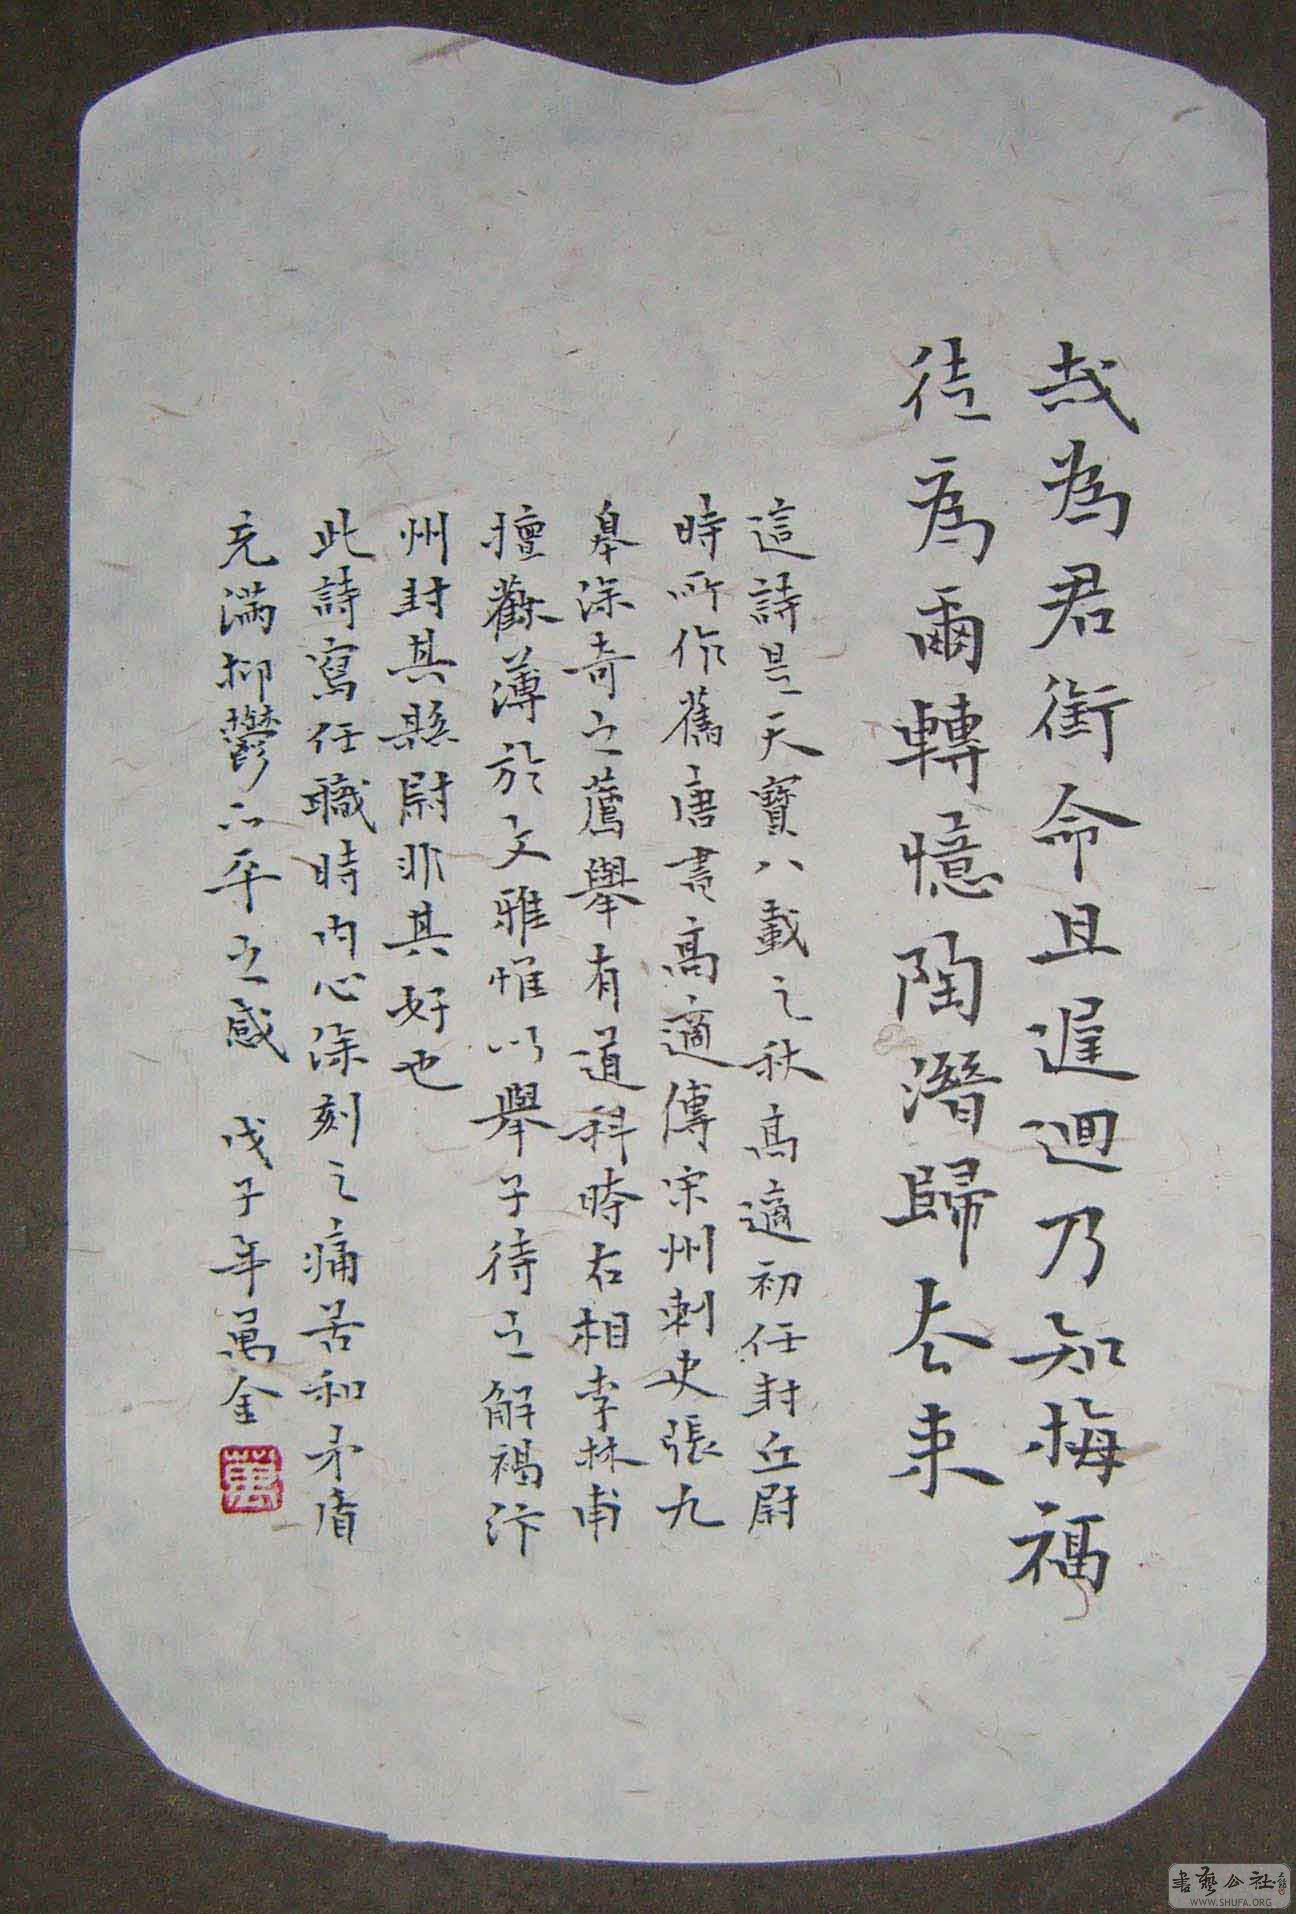 哉為君銜命且遲迴乃知梅福
徒為爾轉憶陶潛歸去来
這詩是天寶八載之秋高適初任封丘尉
時所作舊唐書高適傳宋州刺史張九
皋深奇之薦舉有道科時右相李林甫
擅權薄於文雅惟以舉子待之解褐汴
州封其縣尉非其好也
此詩寫任職時内心深刻之痛苦和矛盾
充滿抑鬱不平之感 戊子年萬金
萬
書藝公社
WWW.SHUFA.ORG